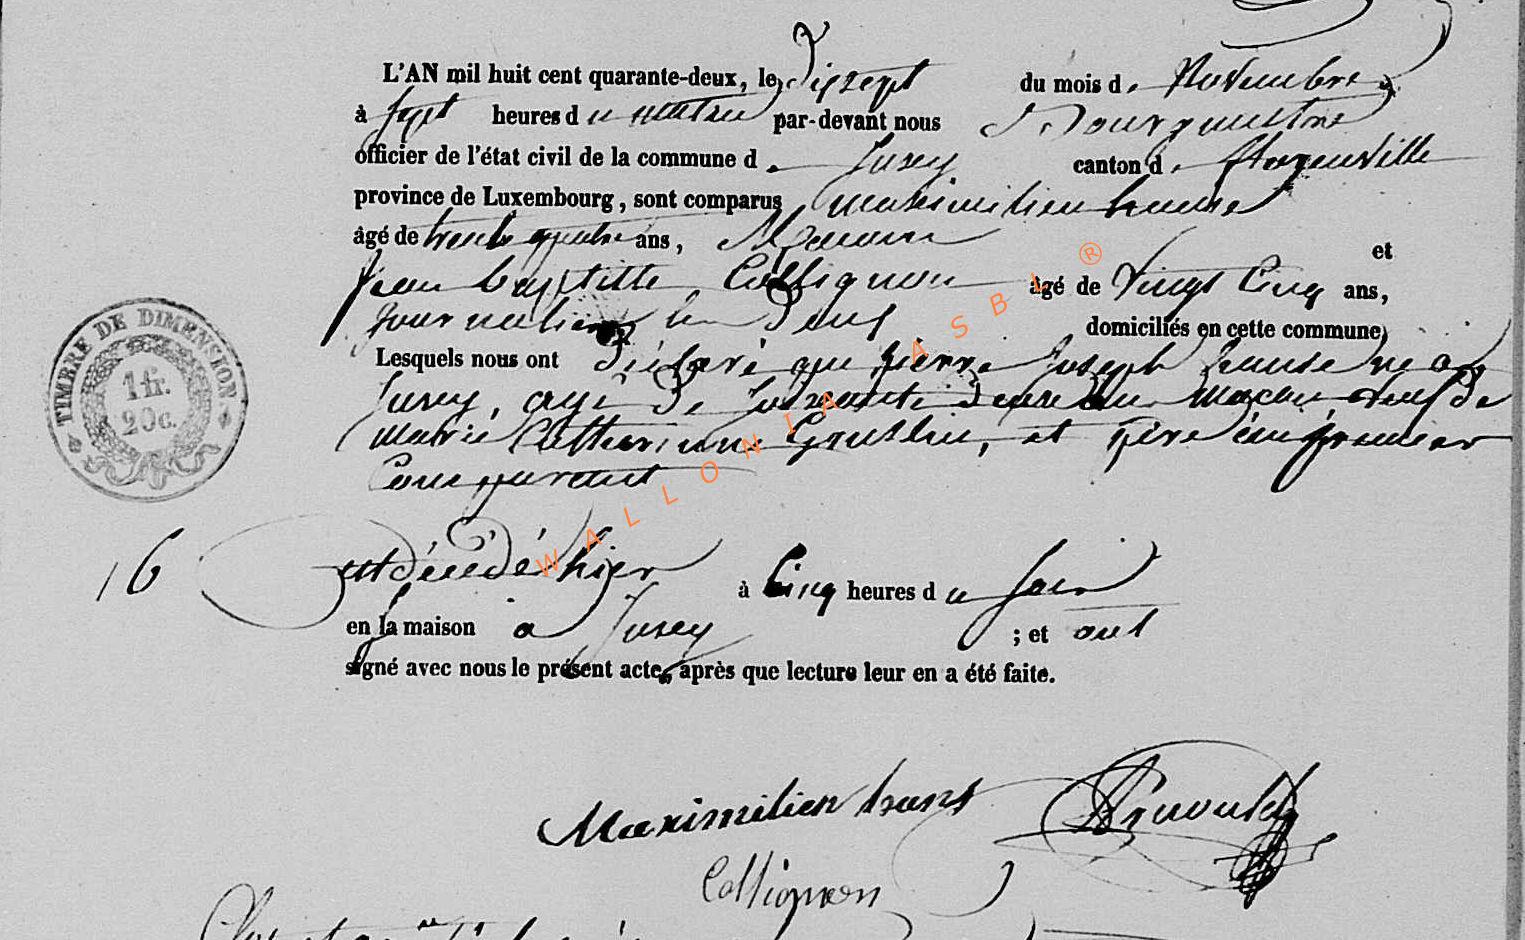 L'AN mil huit cent quarante-deux, le dixsept du mois d. Novembre
à sept heures d u matin par-devant nous Bourgmestre
officier de l'état civil de la commune d. Jusey canton d.
province de Luxembourg, sont comparus Maximilien hanse
âgé de trente quatre ans, Maçon et
Jean baptiste Collignon âgé de Vingt Cinq ans,
journalier les deux domiciliés en cette commune,
Lesquels nous ont déclaré que pierre Joseph hanse né a
Jusey, agé de soixante douze ans Maçon, veuf de
Marie Catherinne et père du premier
Comparant
16 est décédé hier à Cinq heures d u soir
en la maison a Jusey ; et ont
signé avec nous le présent acte, après que lecture leur en a été faite.
TIMBRE DE DIMENSION
1 fr.
20c.
WALLONIA ASBL ®
Maximilien hans
Collignon